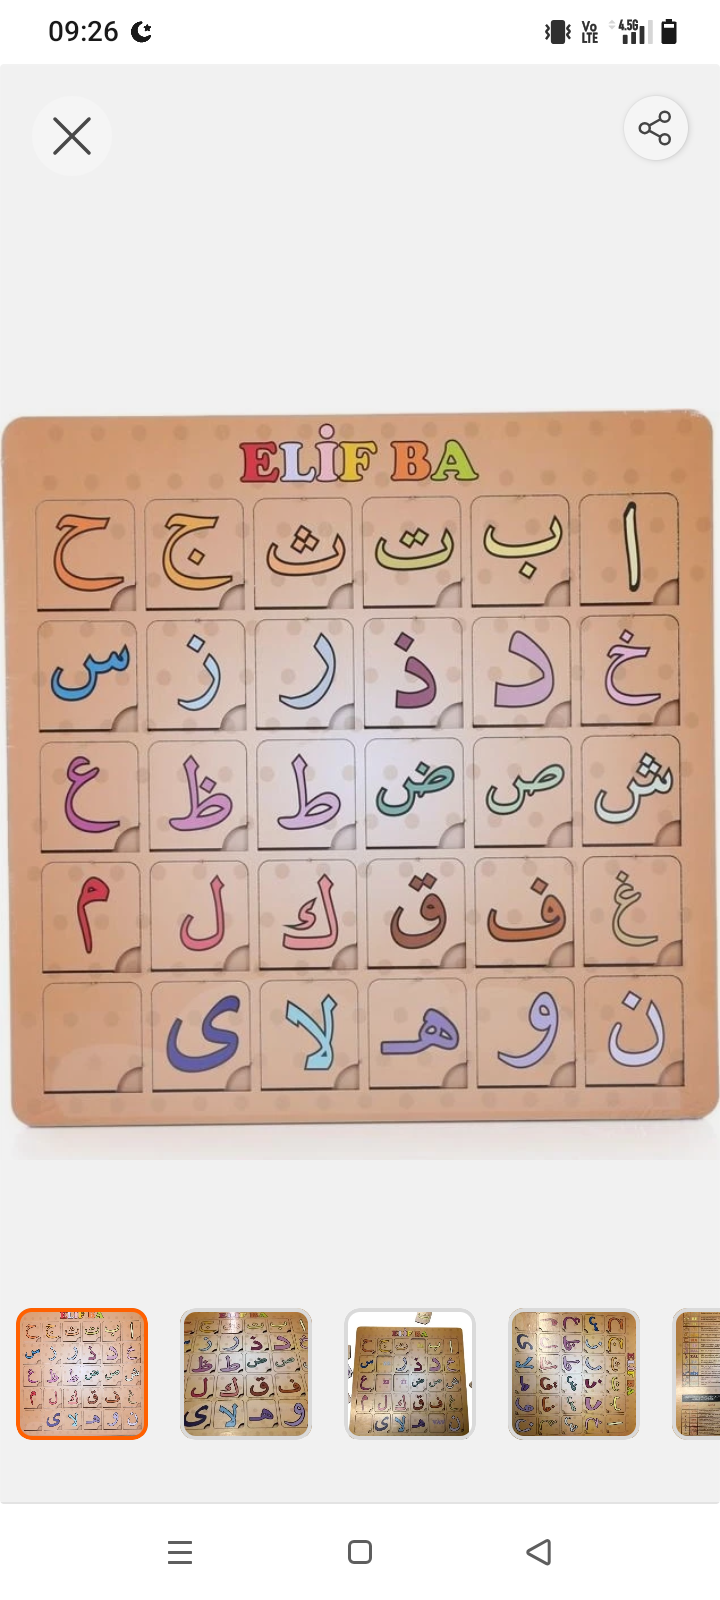 09:26
Vo
LTE
4.5G
ELİF BA
ا ب ت ث ج ح
خ د ذ ر ز س
ش ص ض ط ظ ع
غ ف ق ك ل م
ن و هـ لا ى